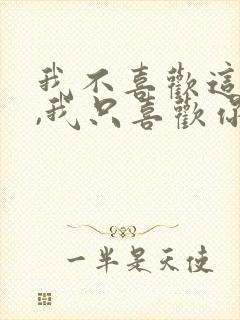 我不喜歡這
,我只喜歡你
一半是天使